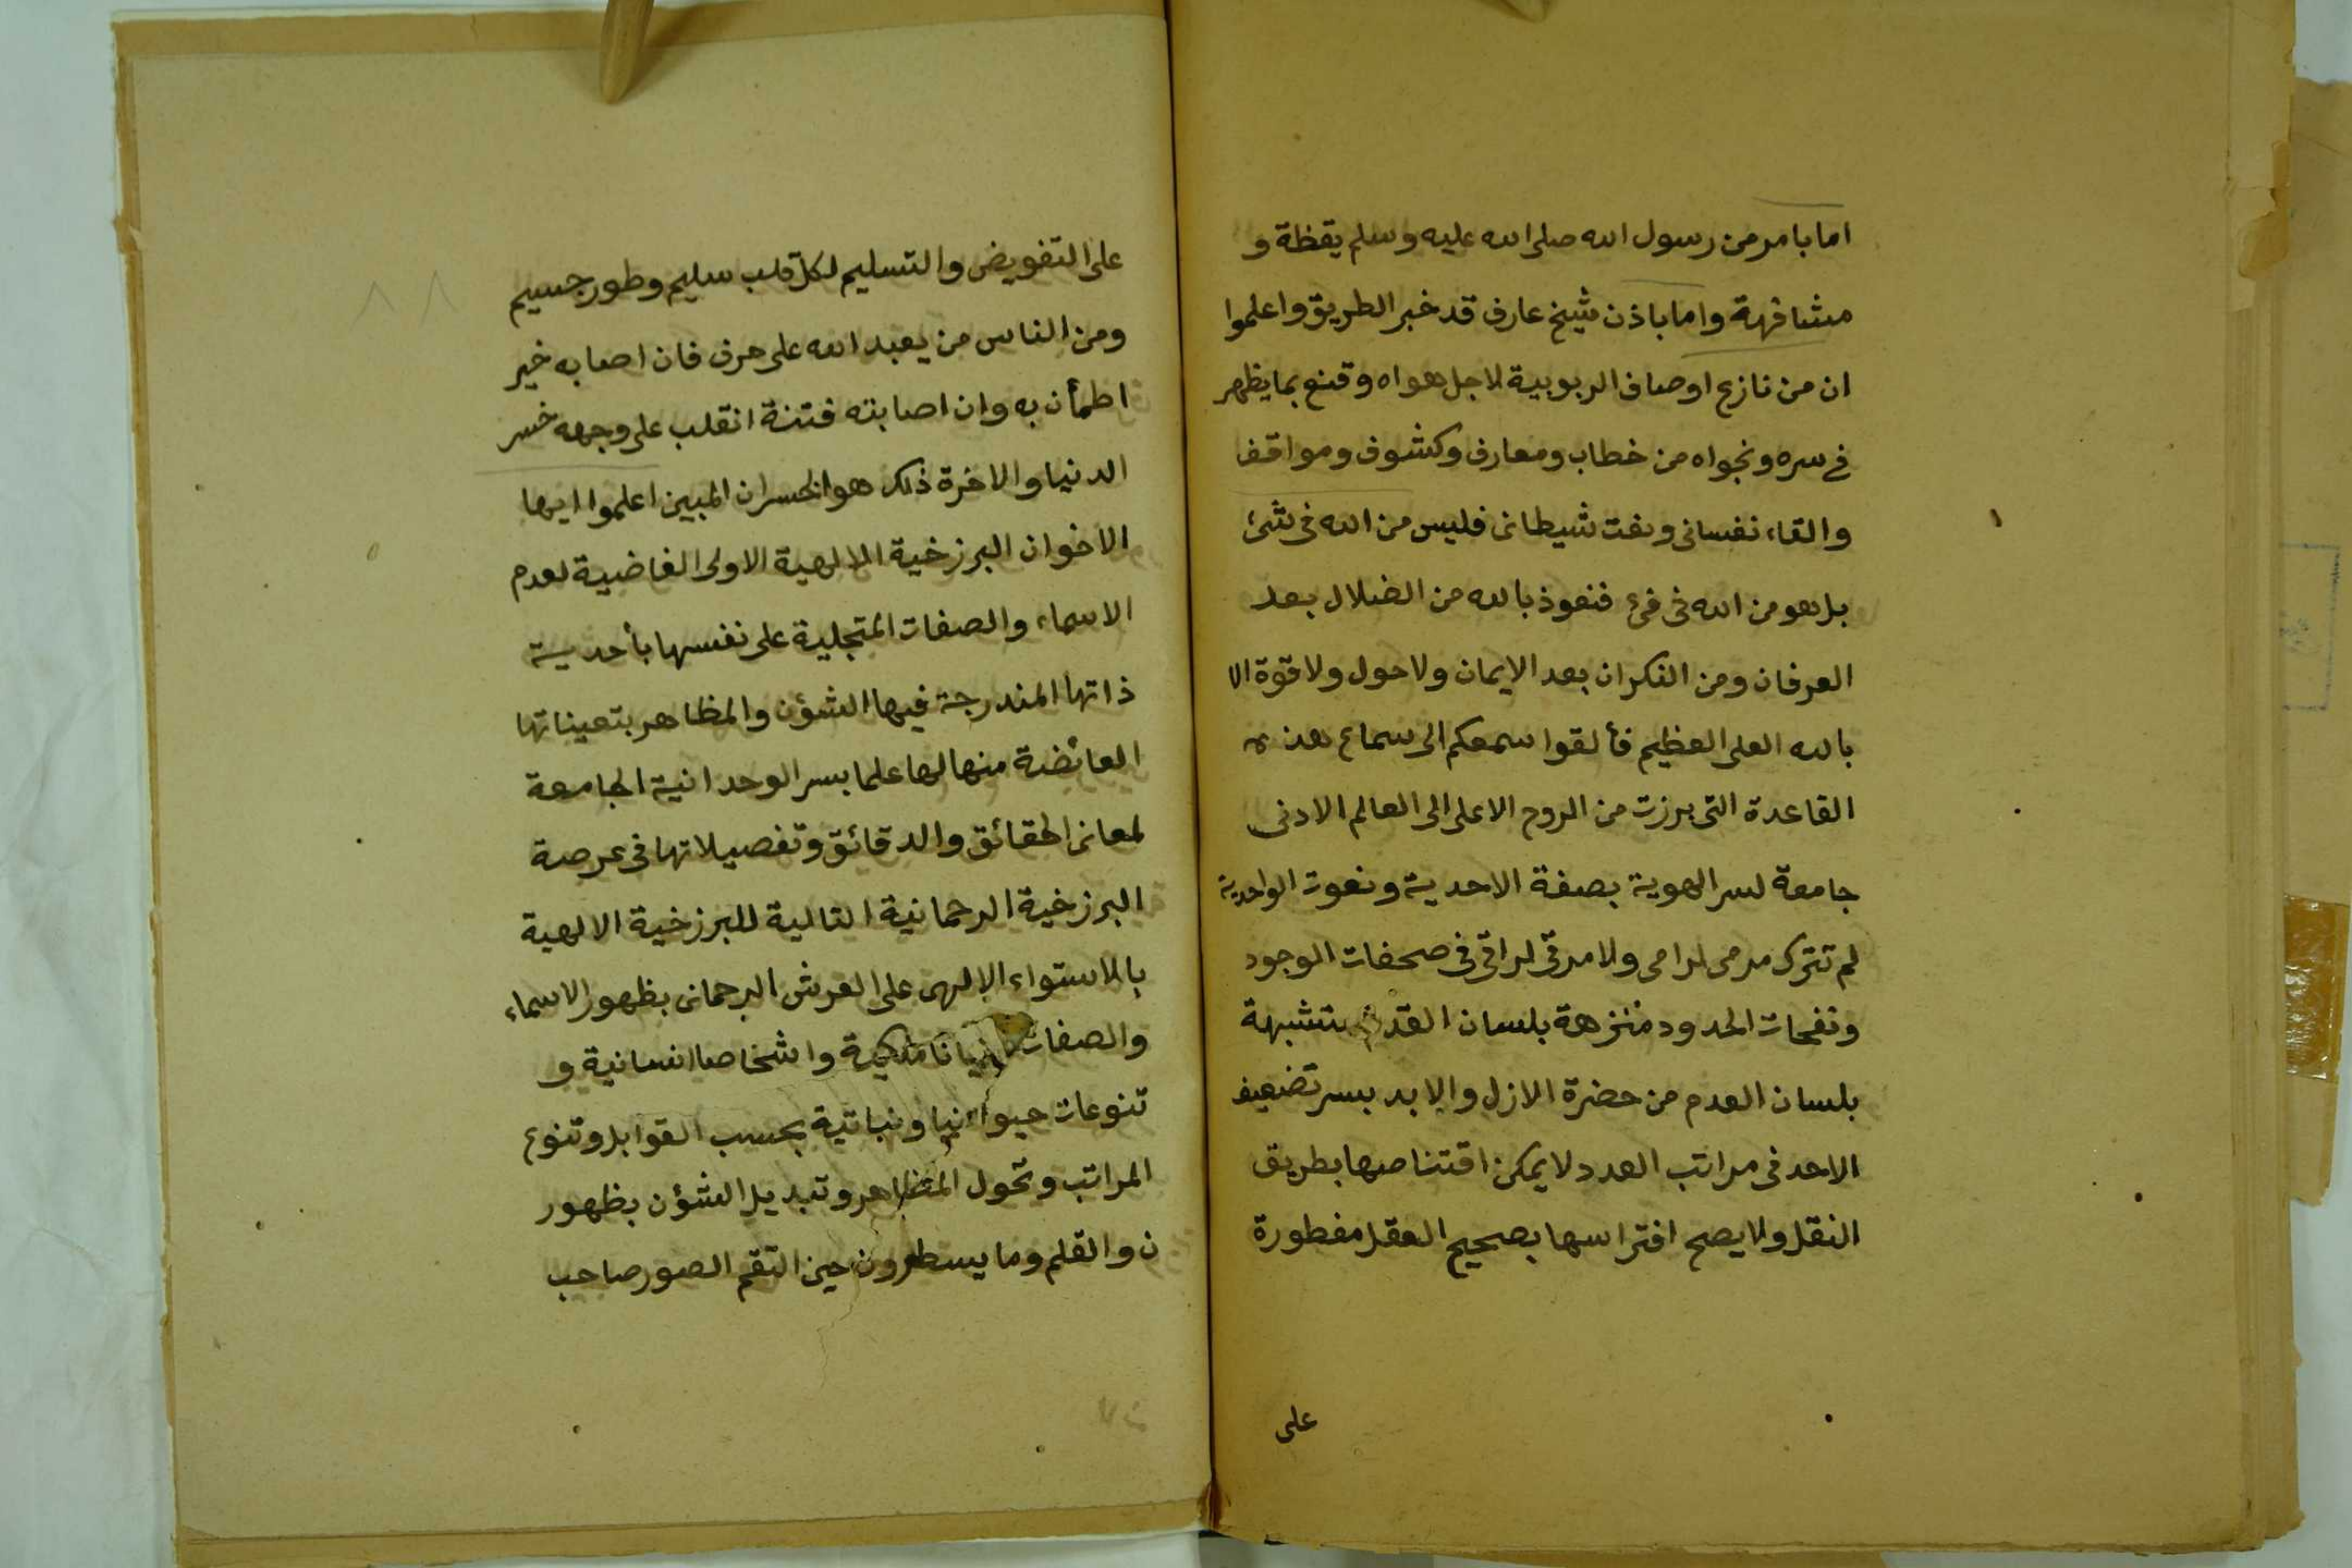 اما بامر من رسول الله صلى الله عليه وسلم يقظة و
مشافهة واما باذن شيخ عارف قد خبر الطريق واعلموا
ان من نازع اوصاف الربوبية لاجل هواه وقنع بما يظهر
في سره ونجواه من خطاب ومعارف وكشوف ومواقف
والقاء نفسانى ونفث شيطانى فليس من الله فى شئ
بل هو من الله فى فئ فنعوذ بالله من الضلال بعد
العرفان ومن النكران بعد الايمان ولا حول ولا قوة الا
بالله العلى العظيم فألقوا سمعكم الى سماع هذه
القاعدة التى برزت من الروح الاعلى الى العالم الادنى
جامعة لسر الهوية بصفة الاحدية ونعوت الواحدية
لم تترك مرمى لرامى ولا مرقى لراقى فى صحفات الوجود
ونفحات الحدود منزهة بلسان القدم متشبهة
بلسان العدم من حضرة الازل والابد بسر تضعيف
الاحد فى مراتب العدد لا يمكن اقتناصها بطريق
النقل ولا يصح افتراسها بصحيح العقل مفطورة
على
٨٨
على التفويض والتسليم لكل قلب سليم وطور جسيم
ومن الناس من يعبد الله على حرف فان اصابه خير
اطمأن به وان اصابته فتنة انقلب على وجهه خسر
الدنيا والاخرة ذلك هو الخسران المبين اعلموا ايها
الاخوان البرزخية الالهية الاولى القاضية لعدم
الاسماء والصفات المتجلية على نفسها بأحدية
ذاتها المندرجة فيها الشؤن والمظاهر بتعيناتها
الفائضة منها لها علما بسر الوحدانية الجامعة
لمعانى الحقائق والدقائق وتفصيلاتها فى عرصة
البرزخية الرحمانية التالية للبرزخية الالهية
بالاستواء الإلهى على العرش الرحمانى بظهور الاسماء
والصفات ملكية واشخاصا انسانية و
تنوعات حيوانيا ونباتية بحسب القوابل وتنوع
المراتب وتحول المظاهر وتبديل الشؤن بظهور
ن والقلم وما يسطرون حين التقم الصور صاحب